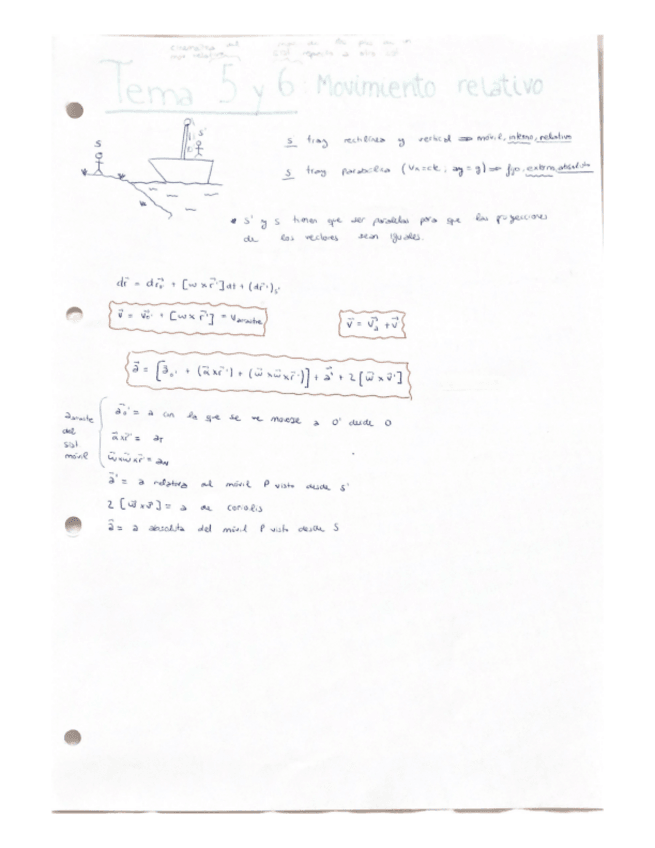 Tema 5 y 6: Movimiento relativo
S
S'
S tray rectilínea y vertical ⇒ móvil, interno, relativo
S tray parabólica (Vx=cte; ay=g) ⇒ fijo, externo, absoluto
• S' y S tienen que ser paralelos para que las proyecciones
de los vectores sean iguales.
dr⃗ = dr⃗o' + [w x r⃗']dt + (dr⃗')s'
v⃗ = v⃗o' + [w x r⃗'] = Varrastre
v⃗ = v⃗a + v⃗'
a⃗ = [a⃗o' + (α⃗ x r⃗') + (w⃗ x w⃗ x r⃗')] + a⃗' + 2[w⃗ x v⃗']
aarrastre
del
sist
móvil
a⃗o' = a con la que se ve moverse a O' desde O
α⃗ x r⃗' = aT
w⃗ x w⃗ x r⃗' = aN
a⃗' = a relativa al móvil P visto desde S'
2[w⃗ x v⃗'] = a de coriolis
a⃗ = a absoluta del móvil P visto desde S